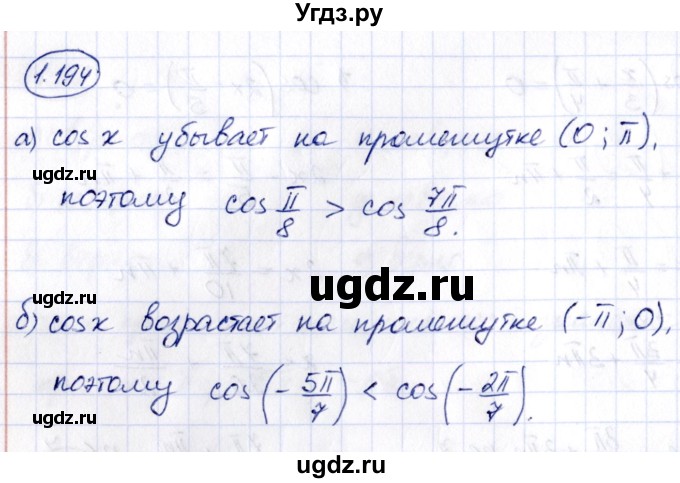 Угдз.ру
1.194
а) cos x убывает на промежутке (0; π),
ugdz.ru
поэтому cos π/8 > cos 7π/8.
ugdz.ru
ugdz.ru
ugdz.ru
б) cos x возрастает на промежутке (-π; 0),
поэтому cos(-5π/7) < cos(-2π/7).
ugdz.ru
ugdz.ru
ugdz.ru